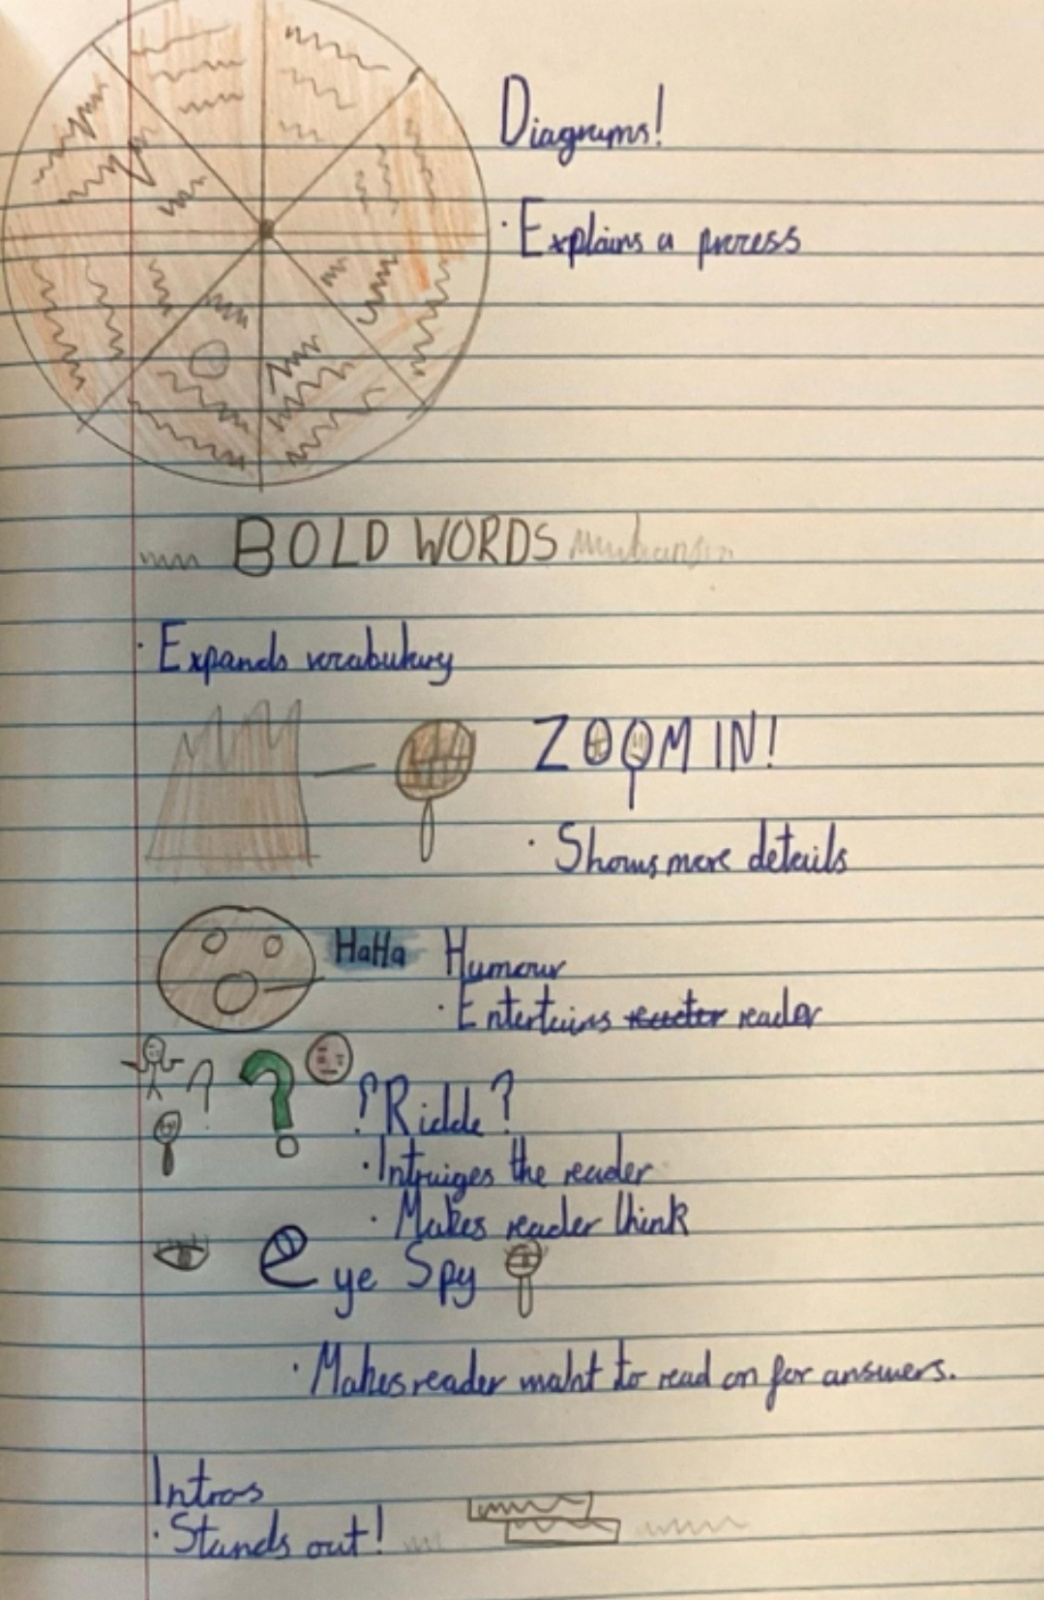 Diagrams!
· Explains a process
BOLD WORDS
· Expands vocabulary
ZOOM IN!
· Shows more details
HaHa Humour
· Entertains reader
? ? ?Riddle?
· Intruiges the reader
· Makes reader think
eye Spy
· Makes reader waht to read on for answers.
Intros
· Stands out!